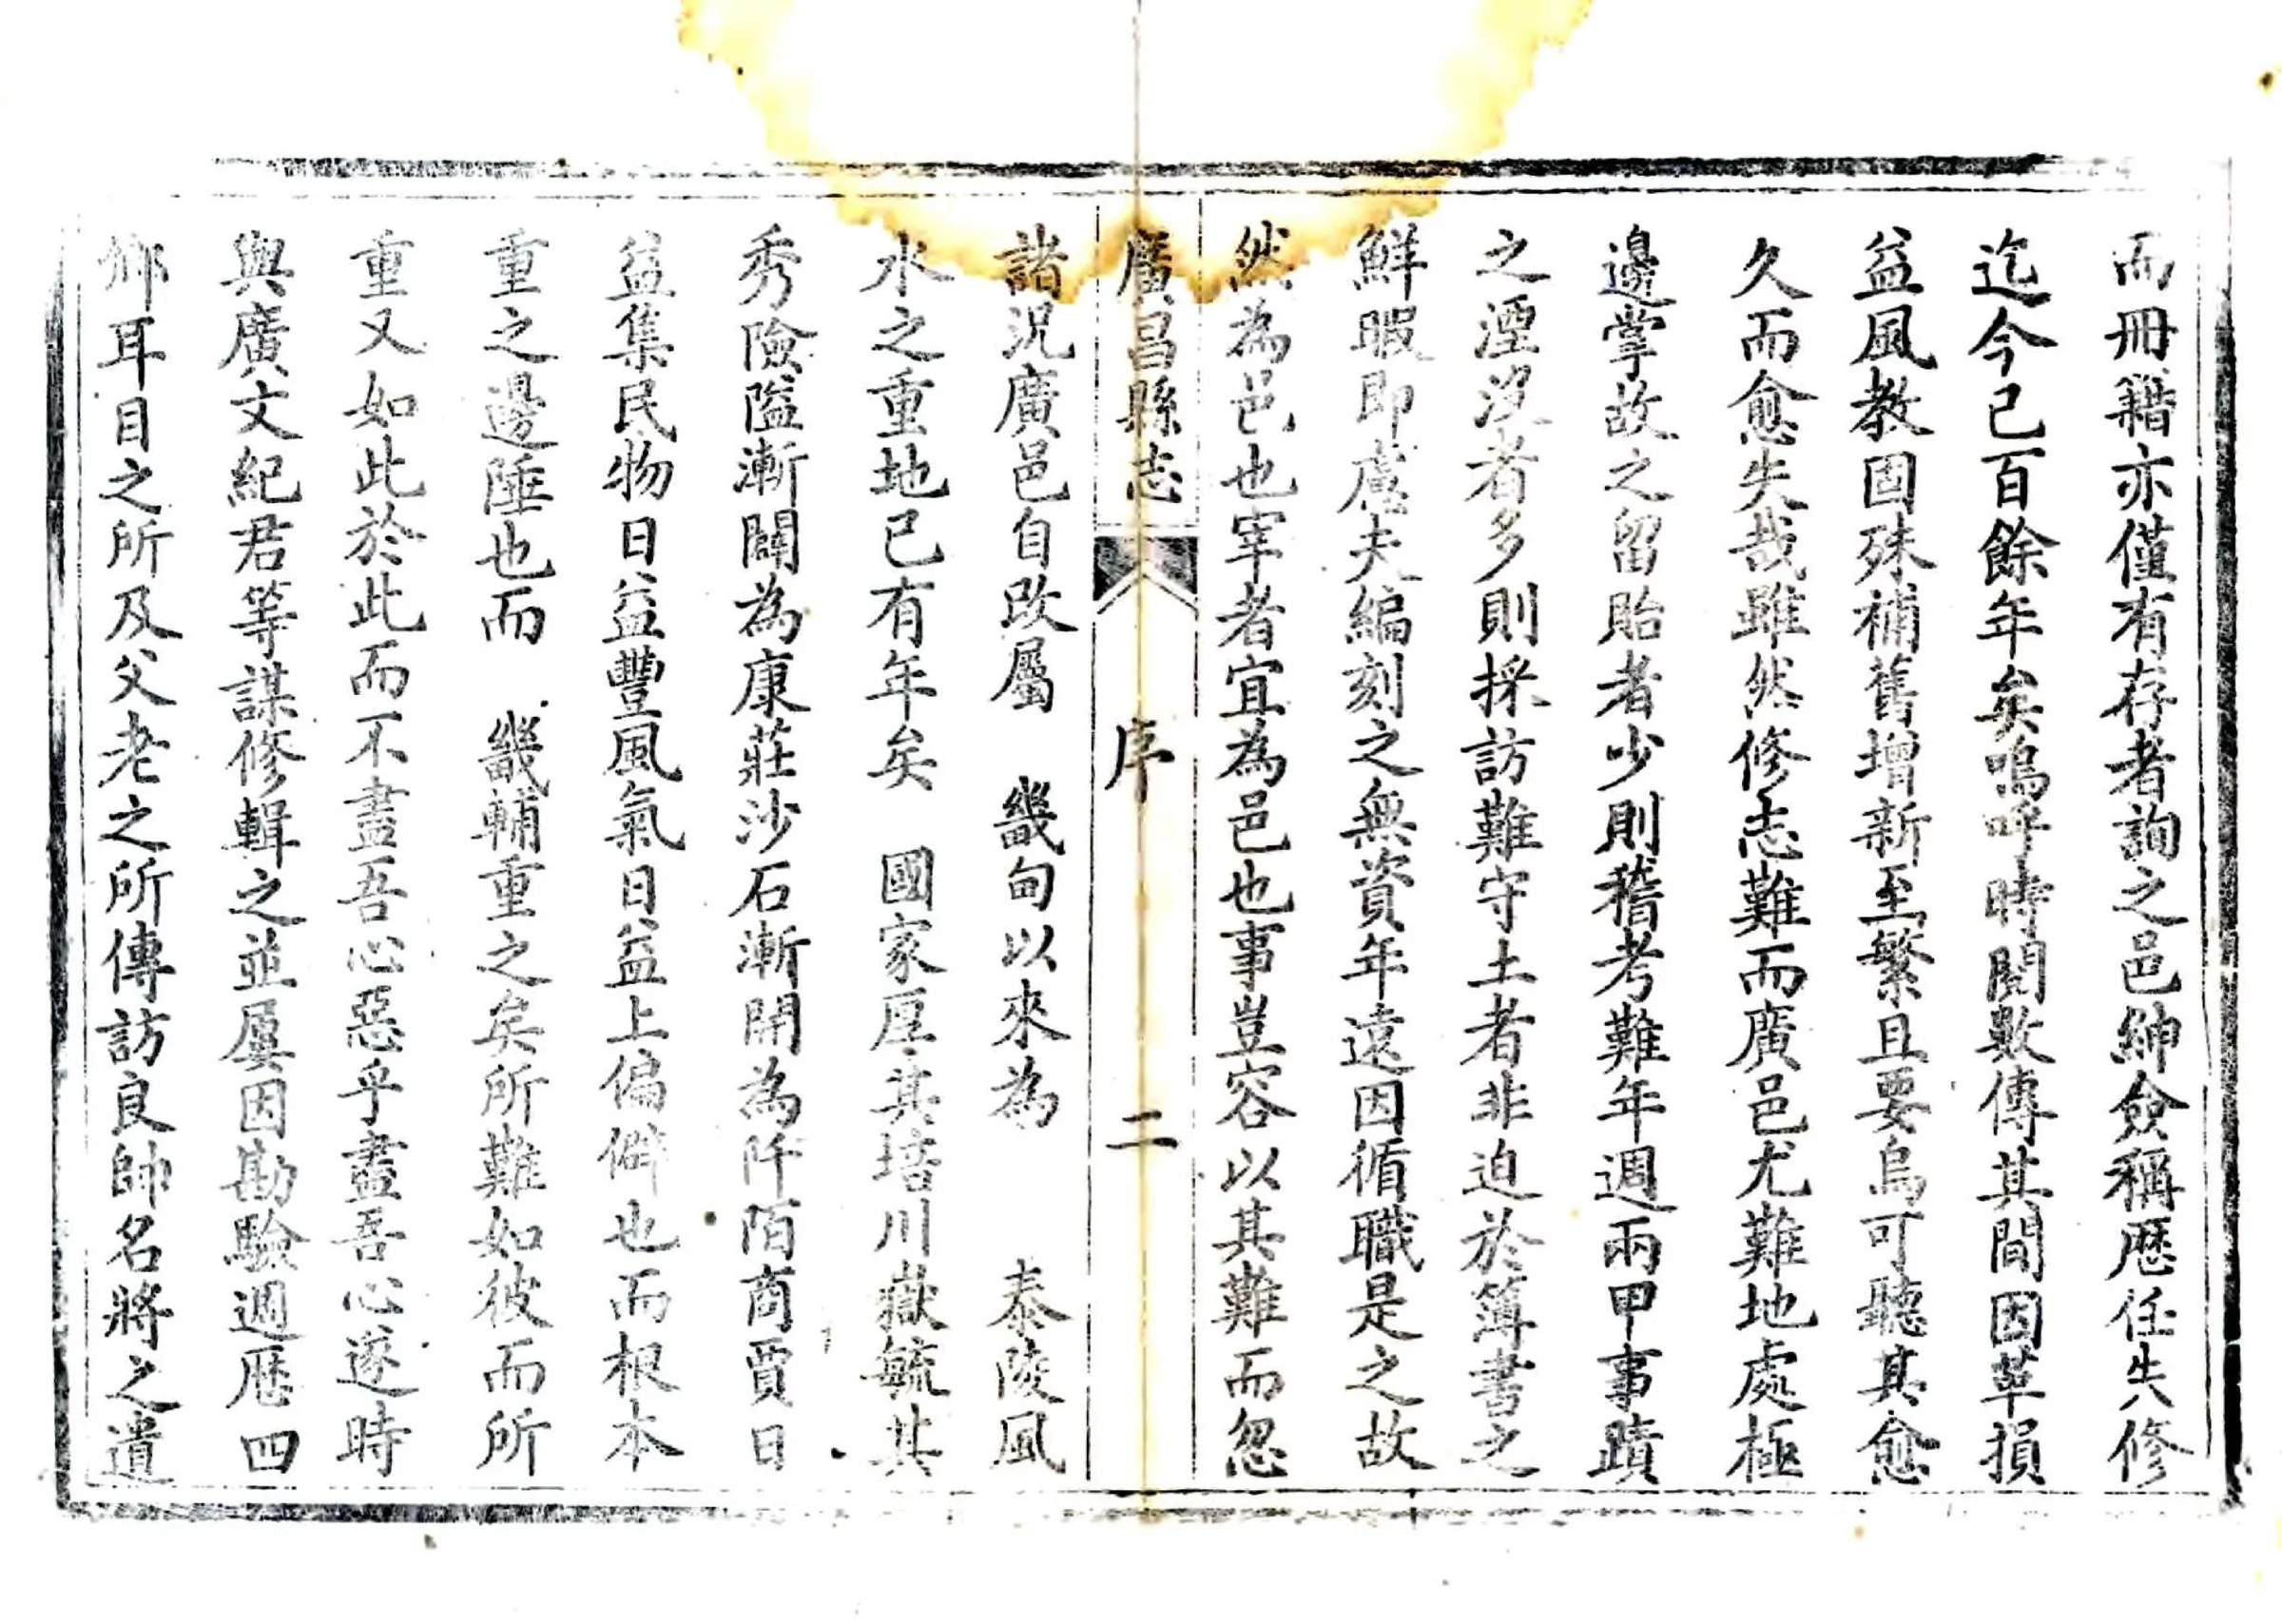 而冊籍亦僅有存者詢之邑紳僉稱歴任失修
迄今已百餘年矣嗚呼時閲數傳其間因革損
益風教固殊補舊增新至繁且要烏可聽其愈
久而愈失哉雖然修志難而廣邑尤難地處極
邊掌故之留貽者少則稽考難年週兩甲事蹟
之湮沒者多則採訪難守土者非迫於簿書之
鮮暇即慮夫編刻之無資年遠因循職是之故
然為邑也宰者宜為邑也事豈容以其難而忽
廣昌縣志 序 二
諸況廣邑自改屬 畿甸以來為 泰陵風
水之重地已有年矣 國家厚其培川嶽毓其
秀險隘漸闢為康莊沙石漸開為阡陌商賈日
益集民物日益豐風氣日益上偏僻也而根本
重之邊陲也而 畿輔重之矣所難如彼而所
重又如此於此而不盡吾心惡乎盡吾心遂時
與廣文紀君等謀修輯之並屢因勘驗週歴四
鄉耳目之所及父老之所傳訪良帥名將之遺